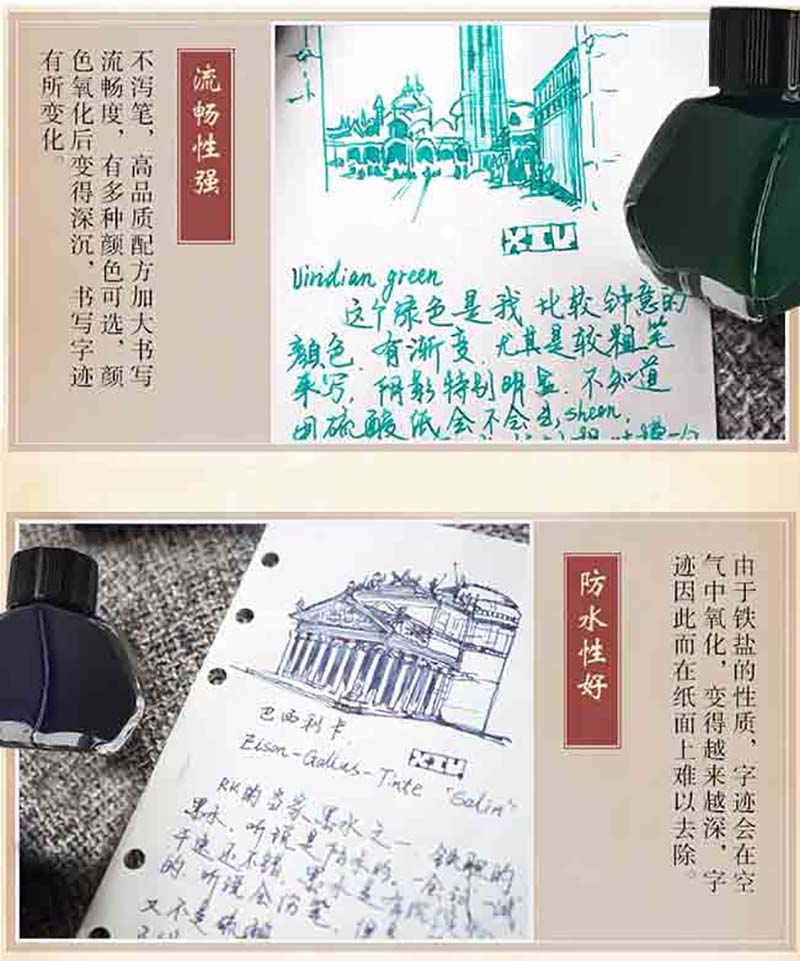 流畅性强
不泻笔，高品质配方加大书写
流畅度，有多种颜色可选，颜
色氧化后变得深沉，书写字迹
有所变化。
XIV
Viridian green
这个绿色是我比较钟意的
颜色.有渐变.尤其是较粗笔
来写,阴影特别明显.不知道
用硫酸纸会不会出sheen,
防水性好
由于铁盐的性质，字迹会在空
气中氧化，变得越来越深，字
迹因此而在纸面上难以去除。
巴西利卡
XIV
Eisen-Gallus-Tinte "Salix"
RK的当家墨水之一.铁胆的
墨水,听说是防水的.一会试一试
干速还不错,墨水是有
的.听说会伤笔.但
又不是硫酸